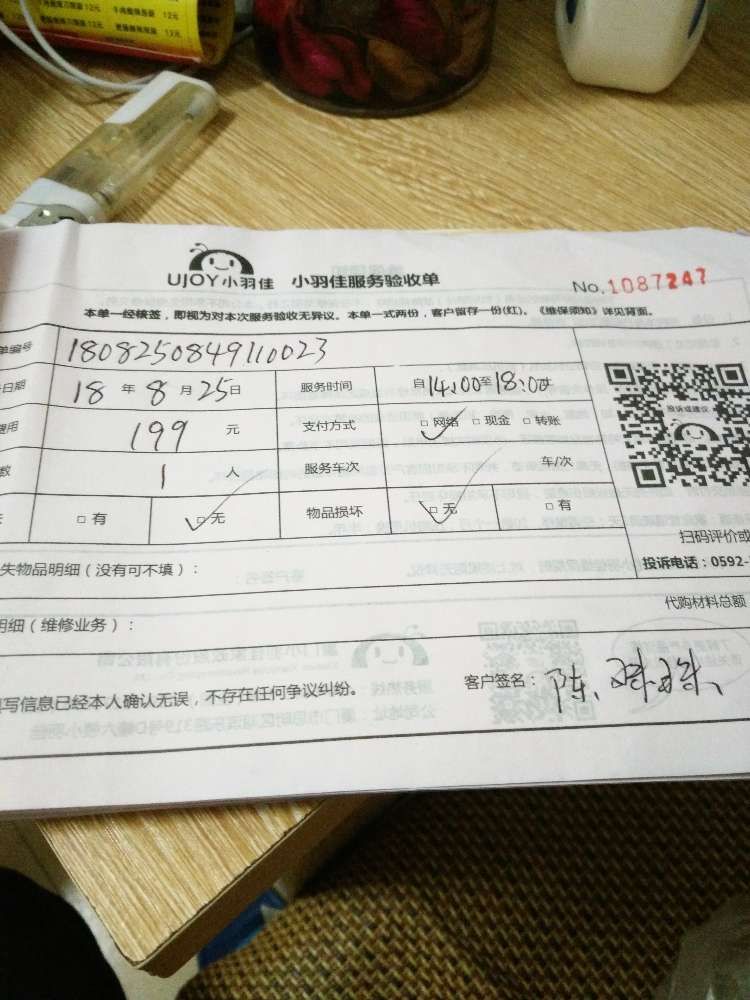 12元 牛肉 12元
12元 12元
UJOY小羽佳 小羽佳服务验收单 No.1087247
本单一经核签，即视为对本次服务验收无异议。本单一式两份，客户留存一份(红)。《维保须知》详见背面。
单编号 1808250849110023
日期 18 年 8 月 25 日 服务时间 自 14:00 至 18:00 止
费用 199 元 支付方式 □ 网络 □ 现金 □ 转账
数 1 人 服务车次 车/次
□ 有 □ 无 物品损坏 □ 无 □ 有
投诉或建议
扫码评价或
投诉电话：0592-
失物品明细（没有可不填）：
代购材料总额
明细（维修业务）：
填写信息已经本人确认无误，不存在任何争议纠纷。 客户签名：陈